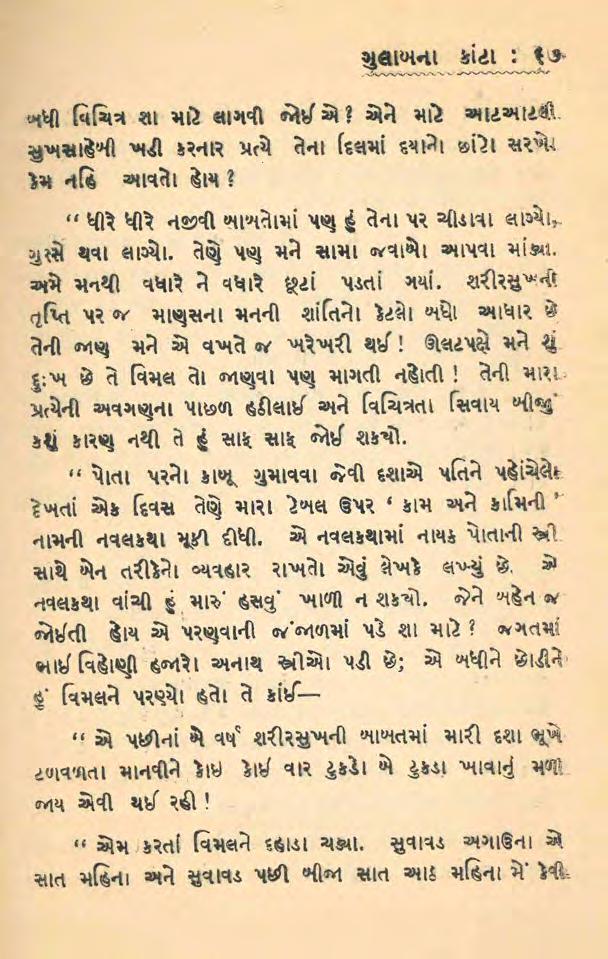 ગુલાબના કાંટા : ૬૭
બધી વિચિત્ર શા માટે લાગવી જોઈ એ? એને માટે આટઆટલી
સુખસાહેબી ખડી કરનાર પ્રત્યે તેના દિલમાં દયાનો છાંટો સરખો
કેમ નહિ આવતો હોય?
“ ધીરે ધીરે નજીવી બાબતોમાં પણ હું તેના પર ચીડાવા લાગ્યો,
ગુસ્સે થવા લાગ્યો. તેણે પણ મને સામા જવાબો આપવા માંડ્યા.
અમે મનથી વધારે ને વધારે છૂટાં પડતાં ગયાં. શરીરસુખની
તૃપ્તિ પર જ માણસના મનની શાંતિનો કેટલો બધો આધાર છે
તેની જાણ મને એ વખતે જ ખરેખરી થઈ! ઊલટપક્ષે મને શું
દુઃખ છે તે વિમલ તો જાણવા પણ માગતી નહોતી! તેની મારા
પ્રત્યેની અવગણના પાછળ હઠીલાઈ અને વિચિત્રતા સિવાય બીજું
કશું કારણ નથી તે હું સાફ સાફ જોઈ શકયો.
“ પોતા પરનો કાબૂ ગુમાવવા જેવી દશાએ પતિને પહોંચેલો
દેખતાં એક દિવસ તેણે મારા ટેબલ ઉપર ‘ કામ અને કામિની ’
નામની નવલકથા મૂકી દીધી. એ નવલકથામાં નાયક પોતાની સ્ત્રી
સાથે બેન તરીકેનો વ્યવહાર રાખતો એવું લેખકે લખ્યું છે. એ
નવલકથા વાંચી હું મારું હસવું ખાળી ન શકયો. જેને બહેન જ
જોઈતી હોય એ પરણવાની જંજાળમાં પડે શા માટે? જગતમાં
ભાઈ વિહોણી હજારો અનાથ સ્ત્રીઓ પડી છે; એ બધીને છોડીને
હું વિમલને પરણ્યો હતો તે કાંઈ—
“ એ પછીનાં બે વર્ષ શરીરસુખની બાબતમાં મારી દશા ભૂખે
ટળવળતા માનવીને કોઈ કોઈ વાર ટુકડો બે ટુકડા ખાવાનું મળી
જાય એવી થઈ રહી!
“ એમ કરતાં વિમલને દહાડા ચઢ્યા. સુવાવડ અગાઉના એ
સાત મહિના અને સુવાવડ પછી બીજા સાત આઠ મહિના મેં કેવી